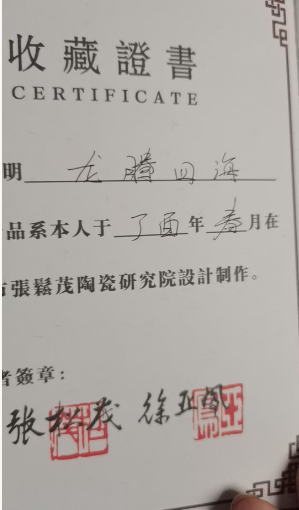 收藏證書
CERTIFICATE
明 龙腾四海
品系本人于 丁酉 年 春 月在
張鬆茂陶瓷研究院設計制作。
者簽章:
张松茂 徐亚凤